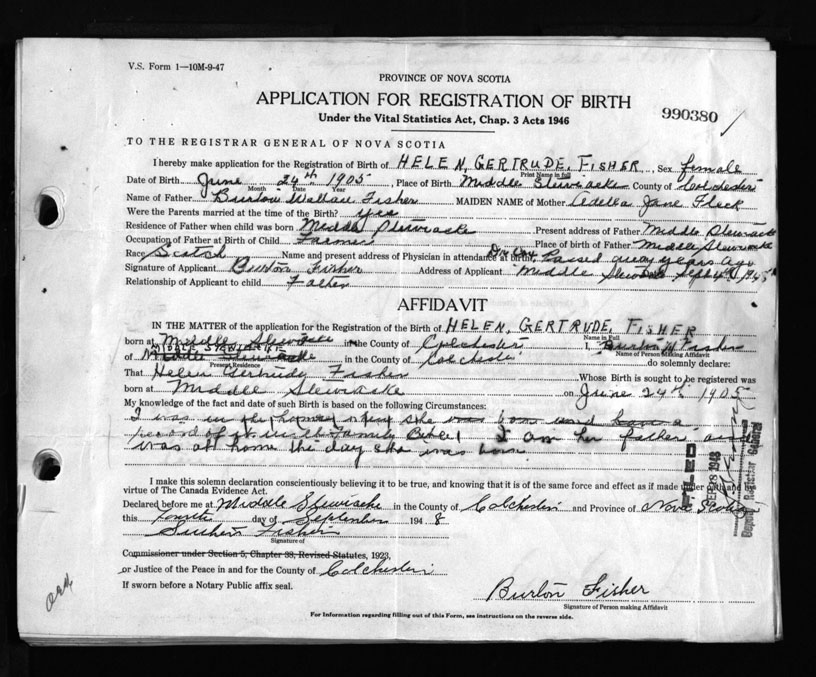 V.S. Form 1—10M-9-47
PROVINCE OF NOVA SCOTIA
APPLICATION FOR REGISTRATION OF BIRTH
Under the Vital Statistics Act, Chap. 3 Acts 1946
990380
TO THE REGISTRAR GENERAL OF NOVA SCOTIA
I hereby make application for the Registration of Birth of HELEN, GERTRUDE, FISHER, Sex female
Print Name in full
Date of Birth June 24th 1905, Place of Birth Middle Stewiacke County of Colchester
Month Date Year
Name of Father Burton Wallace Fisher MAIDEN NAME of Mother Adella Jane Fleck
Were the Parents married at the time of the Birth? yes
Residence of Father when child was born Middle Stewiacke Present address of Father Middle Stewiacke
Occupation of Father at Birth of Child Farmer Place of birth of Father Middle Stewiacke
Race Scotch Name and present address of Physician in attendance at birth, Passed away years ago
Signature of Applicant Burton Fisher Address of Applicant Middle
Relationship of Applicant to child Father
AFFIDAVIT
IN THE MATTER of the application for the Registration of the Birth of HELEN, GERTRUDE, FISHER
Name in Full
born at Middle Stewiacke in the County of Colchester I Burton W Fisher
Name of Person Making Affidavit
MIDDLE STEWIACKE
of Middle Stewiacke in the County of Colchester do solemnly declare:
Present Residence
That Helen Gertrude Fisher Whose Birth is sought to be registered was
born at Middle Stewiacke on June 24th 1905
My knowledge of the fact and date of such Birth is based on the following Circumstances:
I was in the home when she was born and have a
record of it in the Family Bible I am her father and
was at home the day she was born
I make this solemn declaration conscientiously believing it to be true, and knowing that it is of the same force and effect as if made under oath and
virtue of The Canada Evidence Act.
Declared before me at Middle Stewiacke in the County of Colchester and Province of Nova Scotia
this fourth day of September 1948
Fisher
Signature of
Commissioner under Section 5, Chapter 38, Revised Statutes, 1923,
or Justice of the Peace in and for the County of Colchester
If sworn before a Notary Public affix seal.
Burton Fisher
Signature of Person making Affidavit
For Information regarding filling out of this Form, see instructions on the reverse side.
FILED
SEP 28 1948
Deputy Registrar General